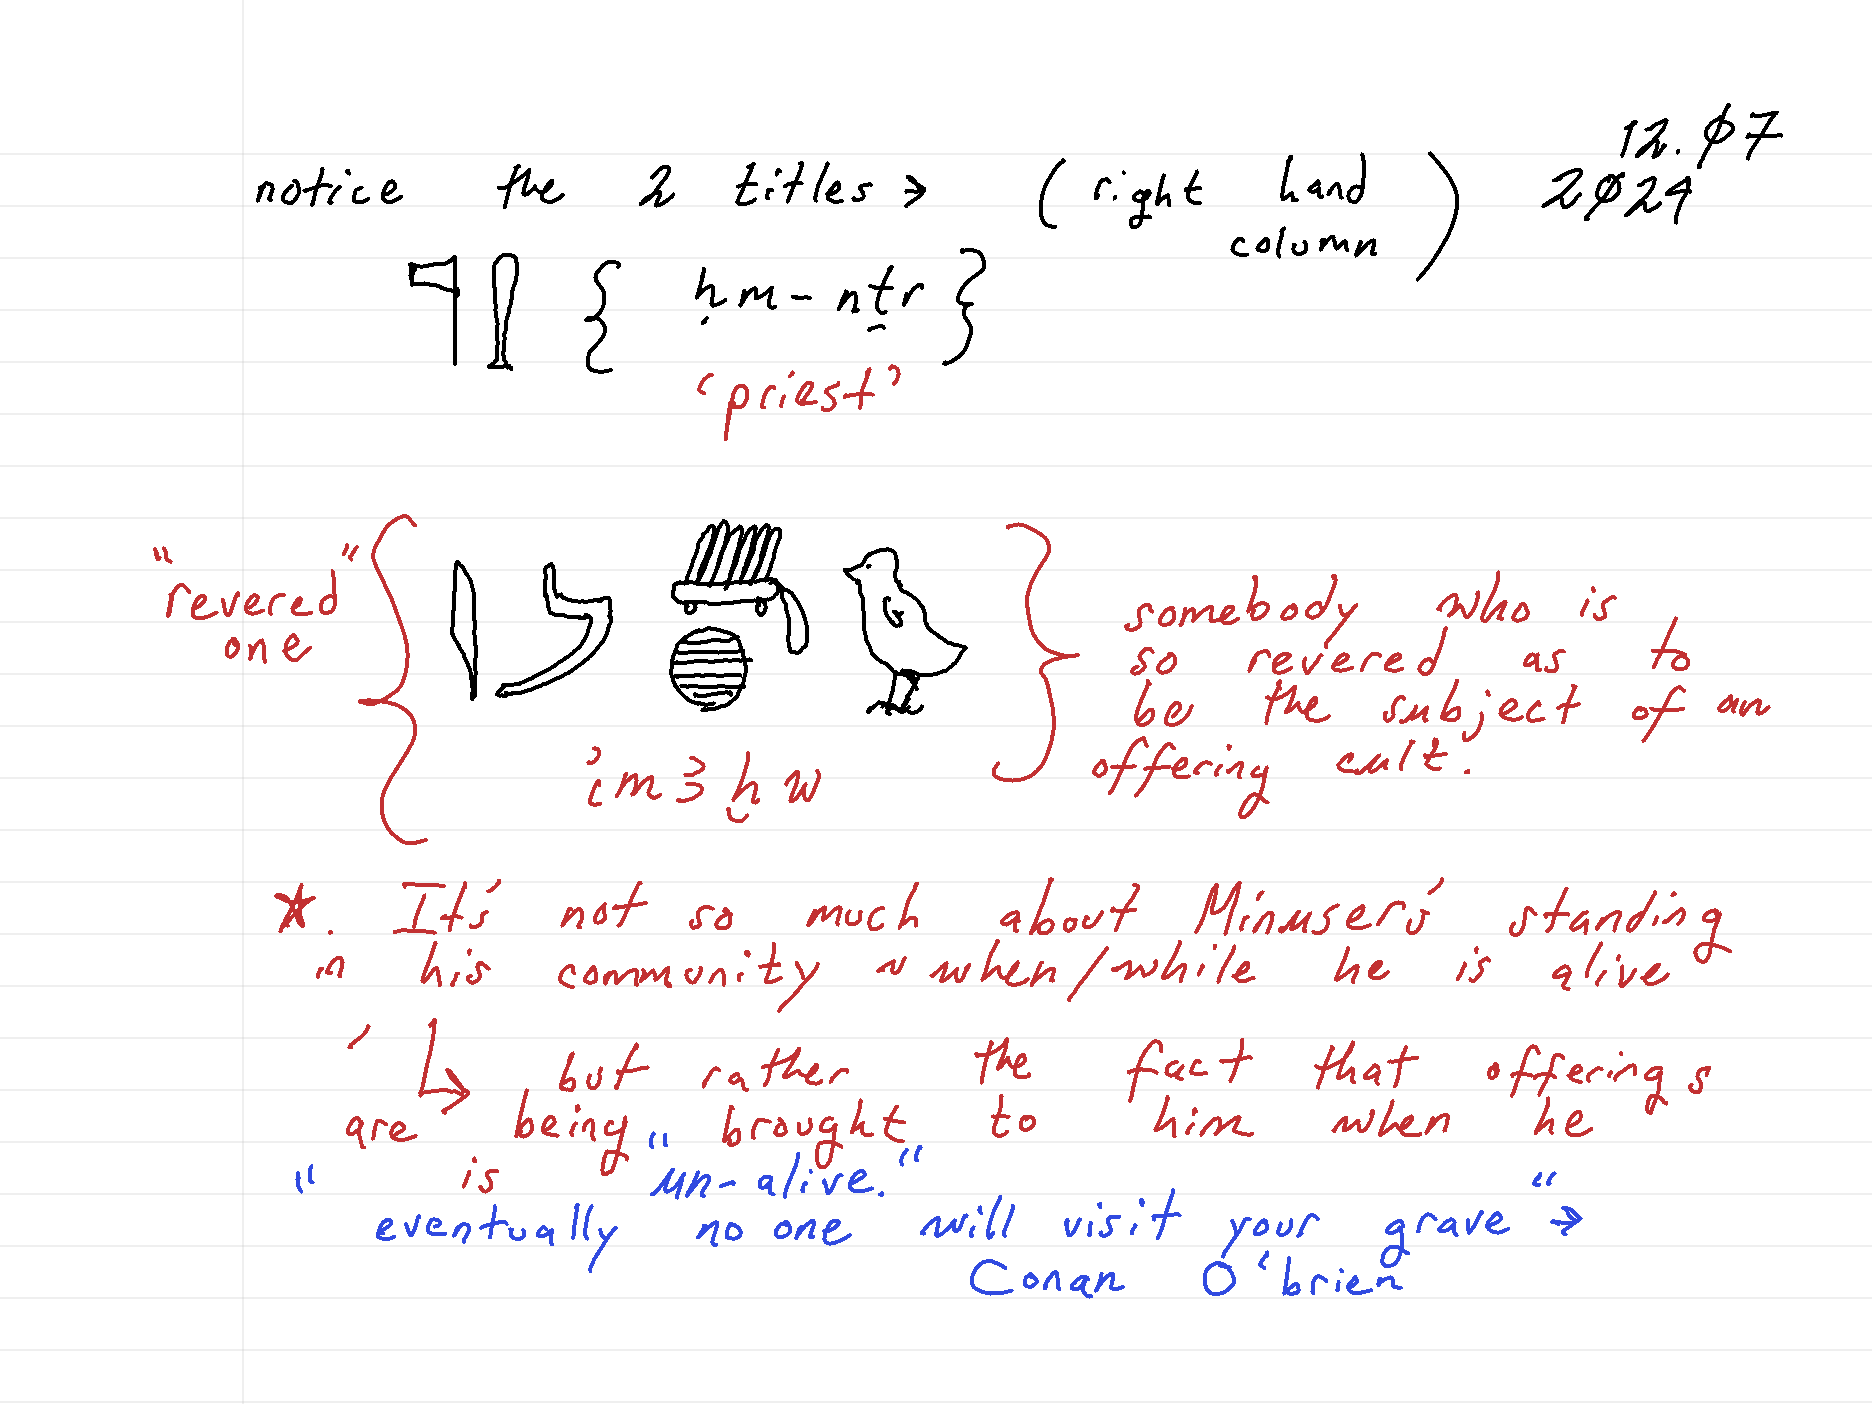 12.Ø7
notice the 2 titles → (right hand column) 2Ø24
𓊹𓍛 { ḥm-nṯr }
‘priest’
"revered" one
𓇋𓌳𓄪𓐍𓅱
i҆mꜣḫw
somebody who is
so revered as to
be the subject of an
offering cult.
*. It's not so much about Minuser's standing
in his community ~ when/while he is alive
↳ but rather the fact that offerings
are being brought to him when he
is "un-alive."
"eventually no one will visit your grave" →
Conan O'brien